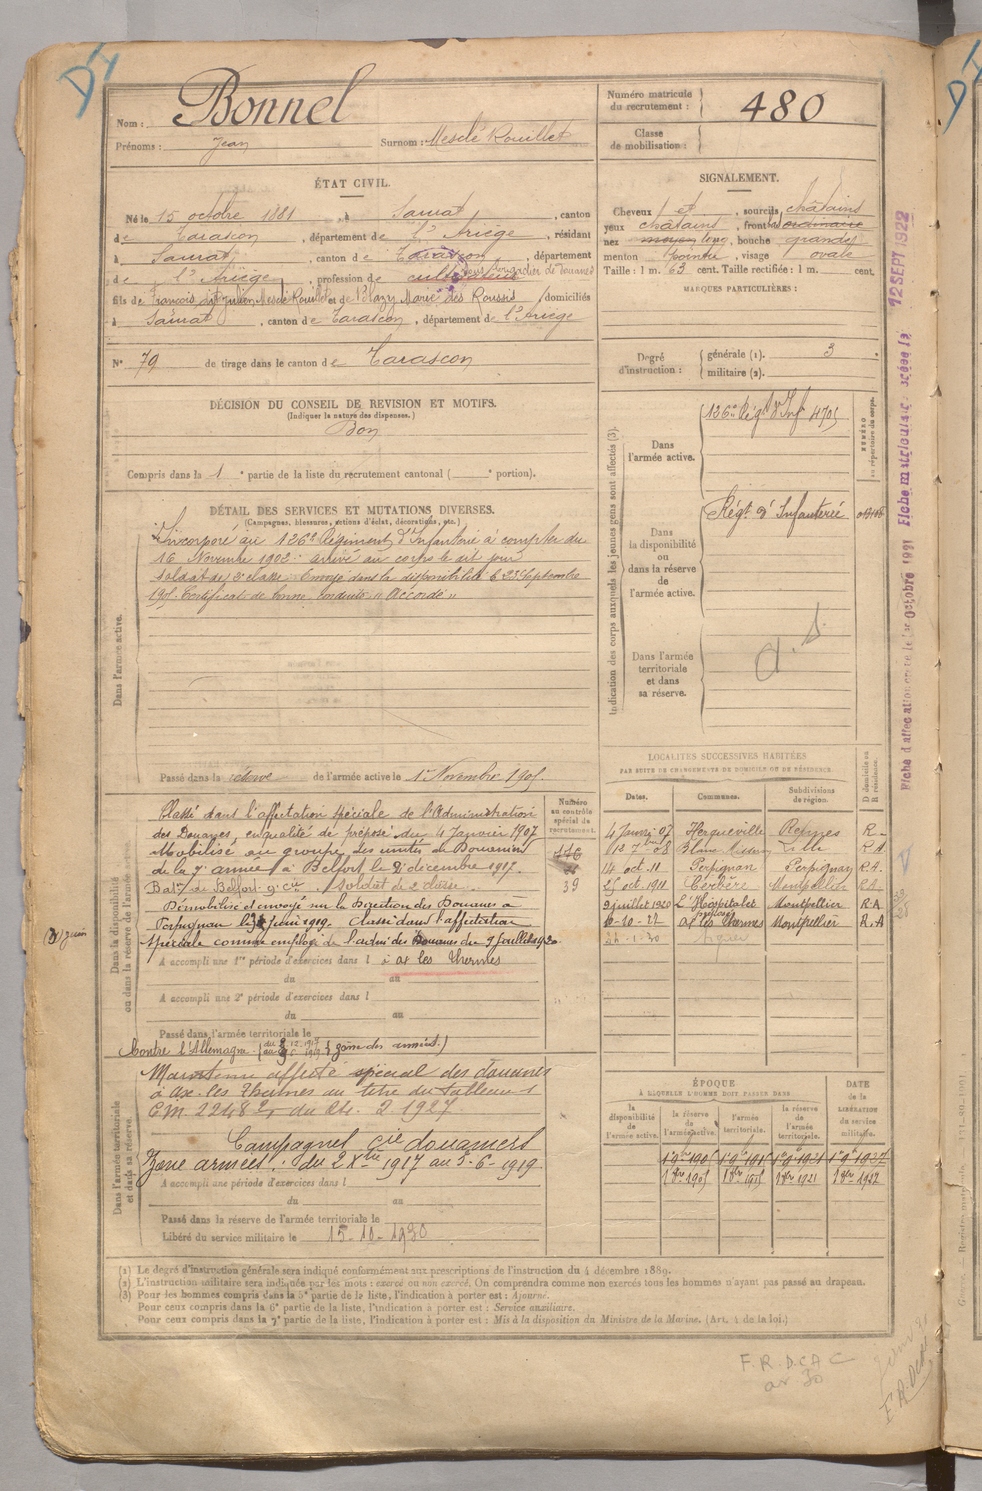 D4
Nom : Bonnel
Prénoms : Jean Surnom : Mesclé Rouillet
Numéro matricule
du recrutement : 480
Classe
de mobilisation :
ÉTAT CIVIL.
Né le 15 octobre 1881, à Saurat, canton
de Tarascon, département de l'Ariège, résidant
à Saurat, canton de Tarascon, département
de l'Ariège, profession de cultivateur
fils de François Mesclé Rouillet et de Blazy Marie des Roussis domiciliés
à Saurat, canton de Tarascon, département de l'Ariège
N° 79 de tirage dans le canton de Tarascon
SIGNALEMENT.
Cheveux, sourcils châtains
yeux châtains, front ordinaire
nez moyen long, bouche grande
menton pointu, visage ovale
Taille : 1 m. 63 cent. Taille rectifiée : 1 m. cent.
MARQUES PARTICULIÈRES :
Degré
d'instruction :
générale (1). 3
militaire (2).
DÉCISION DU CONSEIL DE REVISION ET MOTIFS.
(Indiquer la nature des dispenses.)
Bon
Compris dans la 1e partie de la liste du recrutement cantonal ( e portion).
DÉTAIL DES SERVICES ET MUTATIONS DIVERSES.
(Campagnes, blessures, actions d'éclat, décorations, etc.)
Dans l'armée active.
Incorporé au 126e Régiment d'Infanterie à compter du
16 Novembre 1902. arrivé au corps le dit jour
soldat de 2e classe. Envoyé dans la disponibilité le 23 Septembre
1905. Certificat de bonne conduite "Accordé"
Passé dans la réserve de l'armée active le 1er Novembre 1905
Indication des corps auxquels les jeunes gens sont affectés (3).
NUMÉRO
au répertoire du corps.
Dans
l'armée active.
126e Régt d'Inf 4705
Dans
la disponibilité
ou
dans la réserve
de
l'armée active.
Régt d'Infanterie
Dans l'armée
territoriale
et dans
sa réserve.
Dans la disponibilité
ou dans la réserve de l'armée active
Numéro
au contrôle
spécial de
recrutement.
39
Classé dans l'affectation spéciale de l'Administration
des Douanes, en qualité de préposé du 4 Janvier 1907
Mobilisé au groupe des unités de Douaniers
de la 7e armée à Belfort le 2 décembre 1917.
Batn de Belfort 9e Cie. Soldat de 2e classe.
Démobilisé et envoyé sur la Direction des Douanes à
Perpignan le 5 juin 1919. Classé dans l'affectation
spéciale comme employé de l'admon des Douanes du 9 Juillet 1920
à ax les thermes
A accompli une 1re période d'exercices dans l
du au
A accompli une 2e période d'exercices dans l
du au
Passé dans l'armée territoriale le
Contre l'Allemagne (du 2.12.1917 au 5.6.1919) (zone des armées.)
Dans l'armée territoriale
et dans sa réserve.
Maintenu affecté spécial des douanes
à Ax-les Thermes au titre du tableau
Campagnes Cie douaniers
Zone armées : du 2 Xbre 1917 au 5-6-1919.
A accompli une période d'exercices dans l
du au
Passé dans la réserve de l'armée territoriale le
Libéré du service militaire le 15-10-1930
LOCALITÉS SUCCESSIVES HABITÉES
PAR SUITE DE CHANGEMENTS DE DOMICILE OU DE RÉSIDENCE.
Dates. Communes. Subdivisions
de région.
D domicile ou
R résidence.
4 Janvr 07 Herqueville Rennes R.
Blanc Misseron Lille R A
14 oct. 11 Perpignan Perpignan R.A.
25 oct 1911 Cerbère Montpellier R.A.
9 juillet 1920 L'Hospitalet Montpellier R.A
6-10-22 ax les thermes Montpellier R.A
ÉPOQUE
À LAQUELLE L'HOMME DOIT PASSER DANS
DATE
de la
LIBÉRATION
du service
militaire.
la
disponibilité
de
l'armée active.
la réserve
de
l'armée active.
l'armée
territoriale.
la réserve
de
l'armée
territoriale.
1 9bre 1905 1 9bre 1915 1 9bre 1921 1 9bre 1927
(1) Le degré d'instruction générale sera indiqué conformément aux prescriptions de l'instruction du 4 décembre 1889.
(2) L'instruction militaire sera indiquée par les mots : exercé ou non exercé. On comprendra comme non exercés tous les hommes n'ayant pas passé au drapeau.
(3) Pour les hommes compris dans la 5e partie de la liste, l'indication à porter est : Ajourné.
Pour ceux compris dans la 6e partie de la liste, l'indication à porter est : Service auxiliaire.
Pour ceux compris dans la 7e partie de la liste, l'indication à porter est : Mis à la disposition du Ministre de la Marine. (Art. 4 de la loi.)
12 SEPT 1922